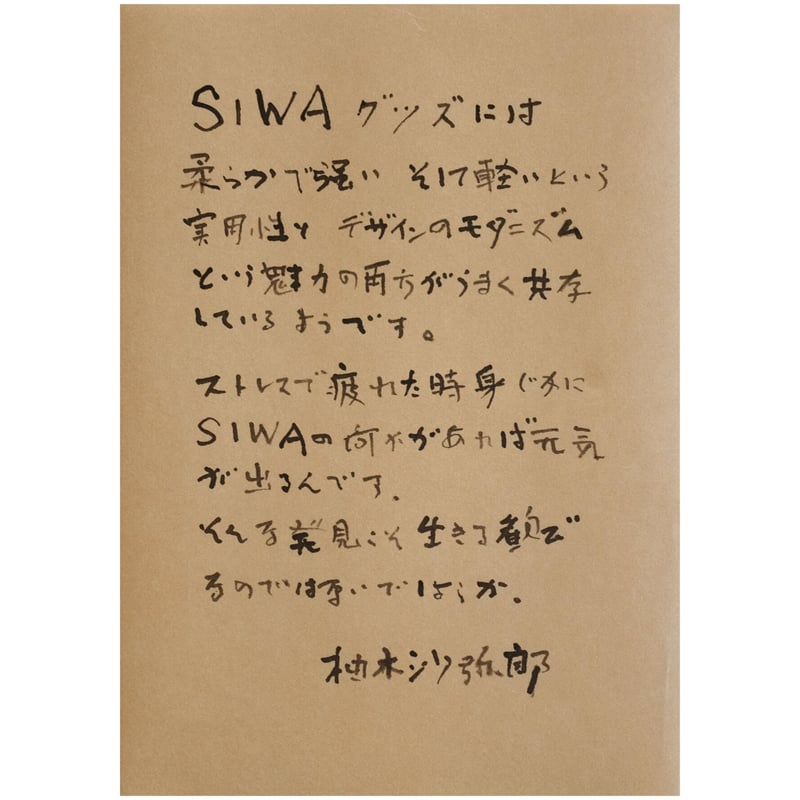 SIWA グッズには
柔らかで強い そして軽いという
実用性と デザインのモダニズム
という魅力の両方がうまく共存
しているようです。
ストレスで疲れた時身じかに
SIWAの何かがあれば元気
が出るんです.
そんな発見こそ生きる歓び
なのではないでしょうか。
柚木沙弥郎